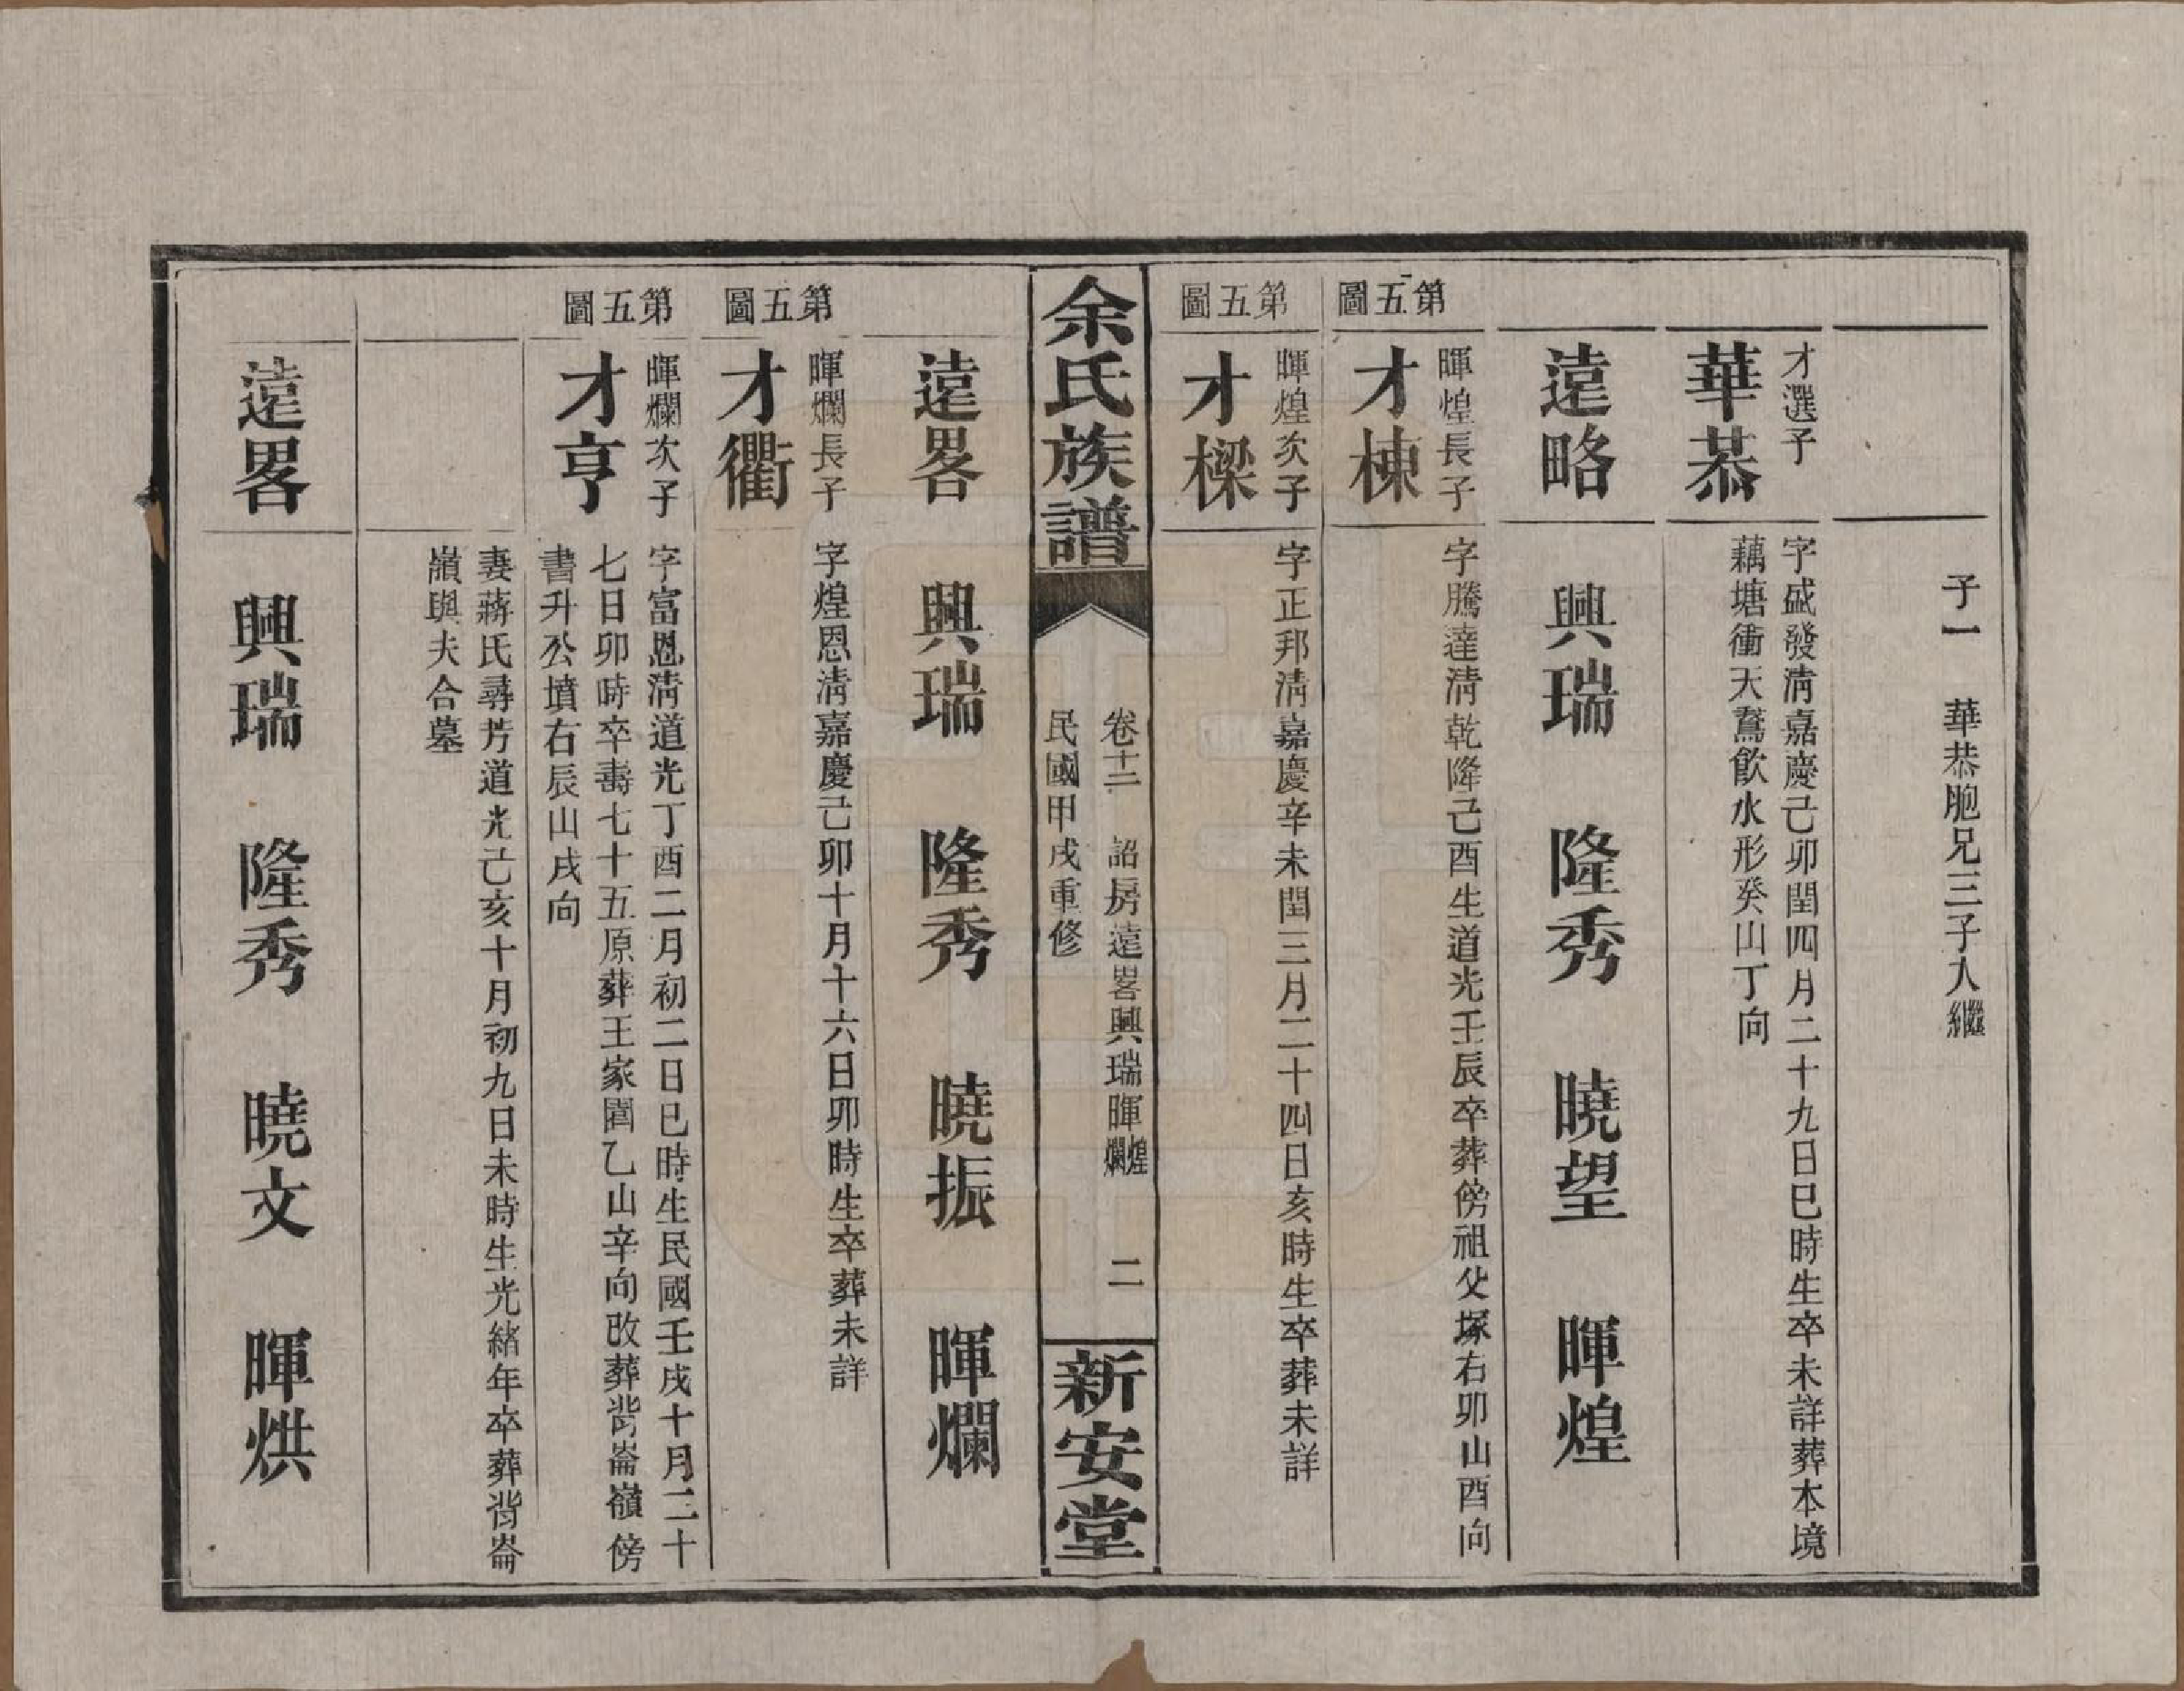 子一　華恭胞兄三子入繼
才選子
華恭
字盛發淸嘉慶己卯閏四月二十九日巳時生卒未詳葬本境
藕塘衝天鵞飮水形癸山丁向
遠略　興瑞　隆秀　曉望　暉煌
第五圖
暉煌長子
才棟
字騰達淸乾隆己酉生道光壬辰卒葬傍祖父塚右卯山酉向
第五圖
暉煌次子
才樑
字正邦淸嘉慶辛未閏三月二十四日亥時生卒葬未詳
余氏族譜
卷十二　詔房遠畧興瑞暉煌爛　二
民國甲戌重修
新安堂
遠畧　興瑞　隆秀　曉振　暉爛
第五圖
暉爛長子
才衢
字煌恩淸嘉慶己卯十月十六日卯時生卒葬未詳
第五圖
暉爛次子
才亨
字富恩淸道光丁酉二月初二日巳時生民國壬戌十月二十
七日卯時卒壽七十五原葬王家園乙山辛向改葬背崙嶺傍
書升公墳右辰山戌向
妻蔣氏尋芳道光己亥十月初九日未時生光緖年卒葬背崙
嶺與夫合墓
遠畧　興瑞　隆秀　曉文　暉烘